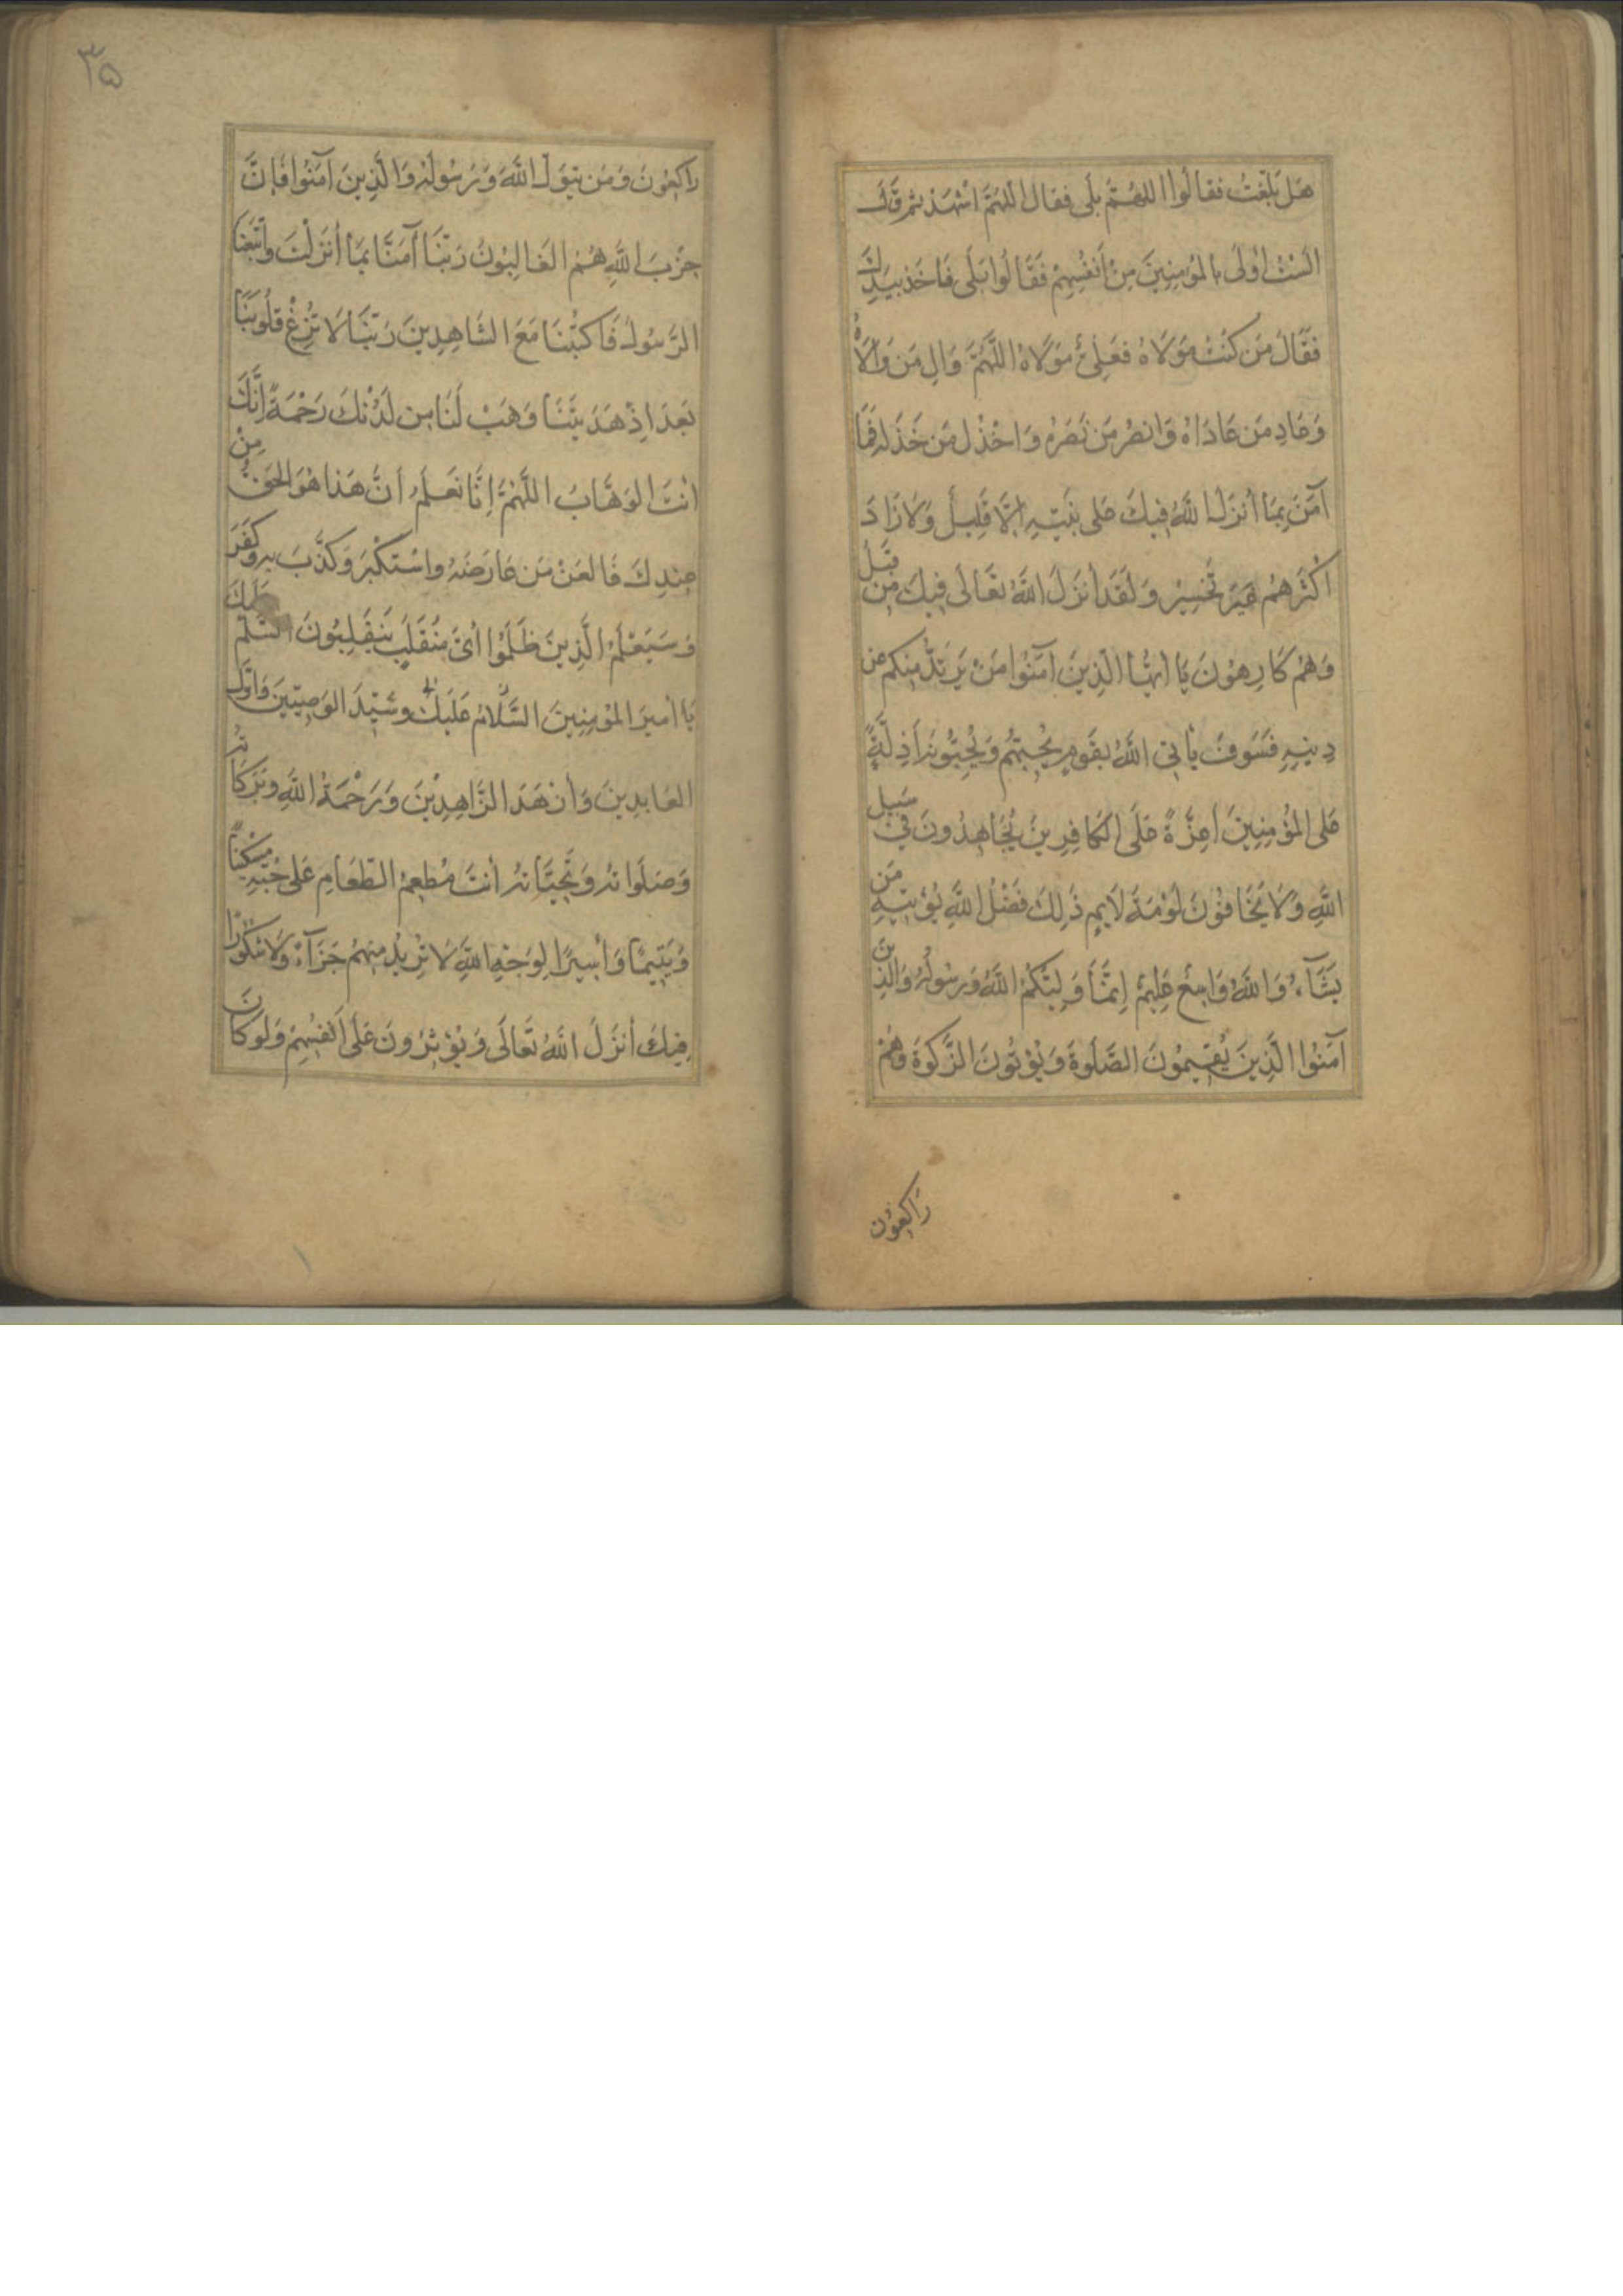 هَل بَلَّغْتُ فَقَالُوا اللهُمَّ بَلَى فَقَالَ اللهُمَّ اشْهَدْ ثُمَّ قَالَ
اَلَسْتُ اَوْلَى بِالْمُؤمِنِينَ مِنْ اَنْفُسِهِمْ فَقَالُوا بَلَى فَاَخَذَ بِيَدِكَ
فَقَالَ مَن كُنْتُ مَوْلَاهُ فَعَلِيٌّ مَوْلَاهُ اللَّهُمَّ وَالِ مَن وَالَاهُ
وَعَادِ مَن عَادَاهُ وَانْصُرْ مَن نَصَرَهُ وَاخْذُل مَن خَذَلَهُ فَمَا
آمَنَ بِمَا اَنْزَلَ اللَّهُ فِيكَ عَلَى نَبِيِّهِ اِلَّا قَلِيلٌ وَلَا زَادَ
اَكْثَرَهُمْ غَيْرَ تَخْسِيرٍ وَلَقَدْ اَنْزَلَ اللَّهُ تَعَالَى فِيكَ مِن قَبْلُ
وَهُمْ كَارِهُونَ يَا اَيُّهَا الَّذِينَ آمَنُوا مَنْ يَرْتَدَّ مِنكُم عَن
دِينِهِ فَسَوفَ يَأتِي اللَّهُ بِقَومٍ يُحِبُّهُم وَيُحِبُّونَهُ اَذِلَّةٍ
عَلَى الْمُؤمِنِينَ اَعِزَّةٍ عَلَى الكَافِرِينَ يُجَاهِدُونَ فِي سَبِيلِ
اللَّهِ وَلَا يَخَافُونَ لَوْمَةَ لَايِمٍ ذَلِكَ فَضْلُ اللَّهِ يُؤتِيهِ مَن
يَشَآءُ وَاللَّهُ وَاسِعٌ عَلِيمٌ اِنَّمَا وَلِيُّكُمُ اللَّهُ وَرَسُولُهُ وَالَّذِينَ
آمَنُوا الَّذِينَ يُقِيمُونَ الصَّلَوةَ وَيُؤتُونَ الزَّكَوةَ وَهُمْ
رَاكِعُون
۳۵
رَاكِعُونَ وَمَن يَتَوَلَّ اللَّهَ وَرَسُولَهُ وَالَّذِينَ آمَنُوا فَاِنَّ
حِزْبَ اللَّهِ هُمُ الغَالِبُونَ رَبَّنَا آمَنَّا بِمَا اَنْزَلْتَ وَاتَّبَعْنَا
الرَّسُولَ فَاكْتُبْنَا مَعَ الشَّاهِدِينَ رَبَّنَا لَا تُزِغْ قُلُوبَنَا
بَعْدَ اِذْ هَدَيْتَنَا وَهَبْ لَنَا مِن لَدُنْكَ رَحْمَةً اِنَّكَ
اَنْتَ الوَهَّابُ اللَّهُمَّ اِنَّا نَعْلَمُ اَنَّ هَذَا هُوَ الحَقُّ مِنْ
عِنْدِكَ فَالْعَنْ مَن عَارَضَهُ وَاسْتَكْبَرَ وَكَذَّبَ بِهِ وَكَفَرَ
وَسَيَعْلَمُ الَّذِينَ ظَلَمُوا اَيَّ مُنْقَلَبٍ يَنْقَلِبُونَ السَّلَمُ عَلَيكَ
يَا اَمِيرَ الْمُؤمِنِينَ السَّلَامُ عَلَيكَ وَسَيِّدَ الوَصِيِّينَ وَاَوَّلَ
العَابِدِينَ وَاَزْهَدَ الزَّاهِدِينَ وَرَحْمَةُ اللَّهِ وَبَرَكَاتُهُ
وَصَلَوَاتُهُ وَتَحِيَّاتُهُ اَنْتَ مُطعِمُ الطَّعَامِ عَلَى حُبِّهِ مِسْكِينًا
وَيَتِيمًا وَاَسِيرًا لِوَجْهِ اللَّهِ لَا تُرِيدُ مِنْهُمْ جَزَآءً وَلَا شُكُورًا
فِيكَ اَنْزَلَ اللَّهُ تَعَالَى وَيُؤثِرُونَ عَلَى اَنْفُسِهِمْ وَلَوكَانَ